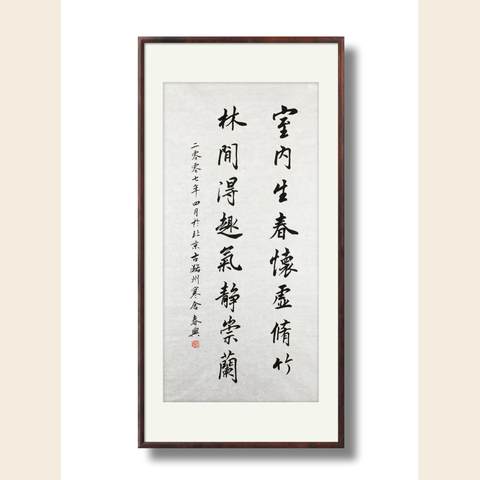 室内生春懷虛脩竹
林間得趣氣靜崇蘭
二零零七年四月於北京古州寒舍 春興